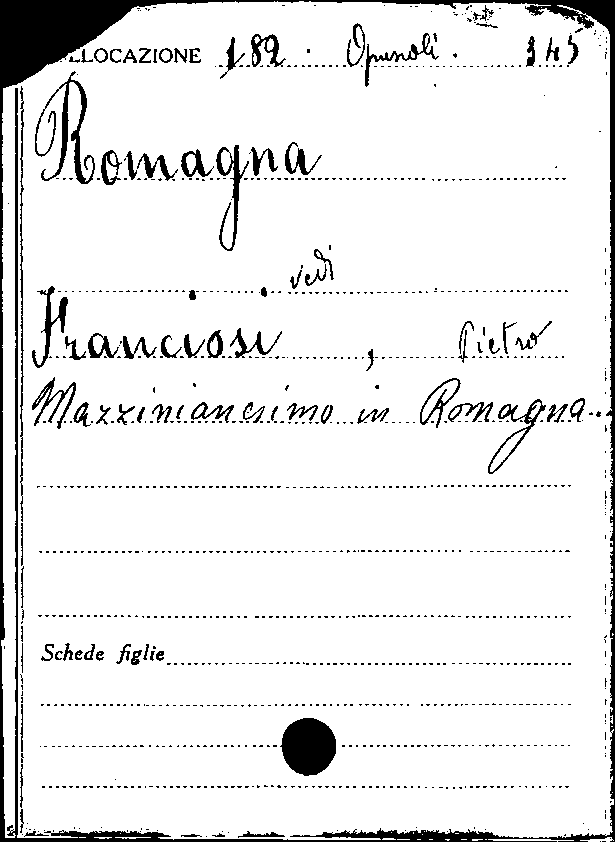 LLOCAZIONE 182 . Opuscoli . 345
Romagna
vedi
Franciosi , Pietro
Mazzinianesimo in Romagna...
Schede figlie